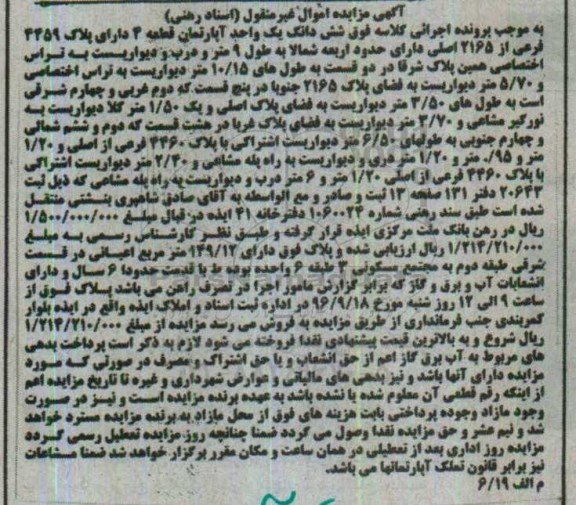 آگهی مزایده اموال غیرمنقول (اسناد رهنی)
به موجب پرونده اجرائی کلاسه فوق شش دانگ یک واحد آپارتمان قطعه ۴ دارای پلاک ۴۴۵۹
فرعی از ۲۱۶۵ اصلی دارای حدود اربعه شمالا به طول ۹ متر و درب و دیواریست به تراس
اختصاصی همین پلاک شرقا در دو قسمت به طول های ۱۰/۱۵ متر دیواریست به تراس اختصاصی
و ۵/۷۰ متر دیواریست به فضای پلاک ۲۱۶۵ جنوبا در پنج قسمت که دوم غربی و چهارم شرقی
است به طول های ۳/۵۰ متر دیواریست به فضای پلاک اصلی و یک ۱/۵۰ متر کلا دیواریست به
نورگیر مشاعی و ۳/۷۰ متر دیواریست به فضای پلاک غربا در هشت قسمت که دوم و ششم شمالی
و چهارم جنوبی به طولهای ۶/۵۰ متر دیواریست اشتراکی با پلاک ۴۴۶۰ فرعی از اصلی و ۱/۲۰
متر و ۰/۹۵ متر و ۱/۲۰ متر دری و دیواریست به راه پله مشاعی و ۲/۴۰ متر دیواریست اشتراکی
با پلاک ۴۴۶۰ فرعی از اصلی ۱/۲۰ متر و ۶ متر درب و دیواریست به راه پله مشاعی که ذیل ثبت
۲۰۶۴۳ دفتر ۱۳۱ صفحه ۱۳ ثبت و صادر و مع الواسطه به آقای صادق شاهپری بنشنی منتقل
شده است طبق سند رهنی شماره ۱۰۶۰۰۲۴ دفترخانه ۴۱ ایذه در قبال مبلغ ۱/۵۰۰/۰۰۰/۰۰۰
ریال در رهن بانک ملت مرکزی ایذه قرار گرفته و طبق نظر کارشناس رسمی به مبلغ
۱/۲۱۴/۲۱۰/۰۰۰ ریال ارزیابی شده و پلاک فوق دارای ۱۴۹/۱۲ متر مربع اعیانی در قسمت
شرقی طبقه دوم به مجتمع مسکونی ۳ طبقه ۶ واحده بوده با قدمت حدودا ۶ سال و دارای
انشعابات آب و برق و گاز که برابر گزارش مامور اجرا در تصرف راهن می باشد پلاک فوق از
ساعت ۹ الی ۱۲ روز شنبه مورخ ۹۶/۹/۱۸ در اداره ثبت اسناد و املاک ایذه واقع در ایذه بلوار
کمربندی جنب فرمانداری از طریق مزایده به فروش می رسد مزایده از مبلغ ۱/۲۱۴/۲۱۰/۰۰۰
ریال شروع و به بالاترین قیمت پیشنهادی نقدا فروخته می شود لازم به ذکر است پرداخت بدهی
های مربوط به آب برق گاز اعم از حق انشعاب و یا حق اشتراک و مصرف در صورتی که مورد
مزایده دارای آنها باشد و نیز بدهی های مالیاتی و عوارض شهرداری و غیره تا تاریخ مزایده اعم
از اینکه رقم قطعی آن معلوم شده یا نشده باشد به عهده برنده مزایده است و نیز در صورت
وجود مازاد وجوه پرداختی بابت هزینه های فوق از محل مازاد به برنده مزایده مسترد خواهد
شد و نیم عشر و حق مزایده نقدا وصول می گردد ضمنا چنانچه روز مزایده تعطیل رسمی گردد
مزایده روز اداری بعد از تعطیلی در همان ساعت و مکان مقرر برگزار خواهد شد ضمنا مشاعات
نیز برابر قانون تملک آپارتمانها می باشد.
م الف ۶/۱۹